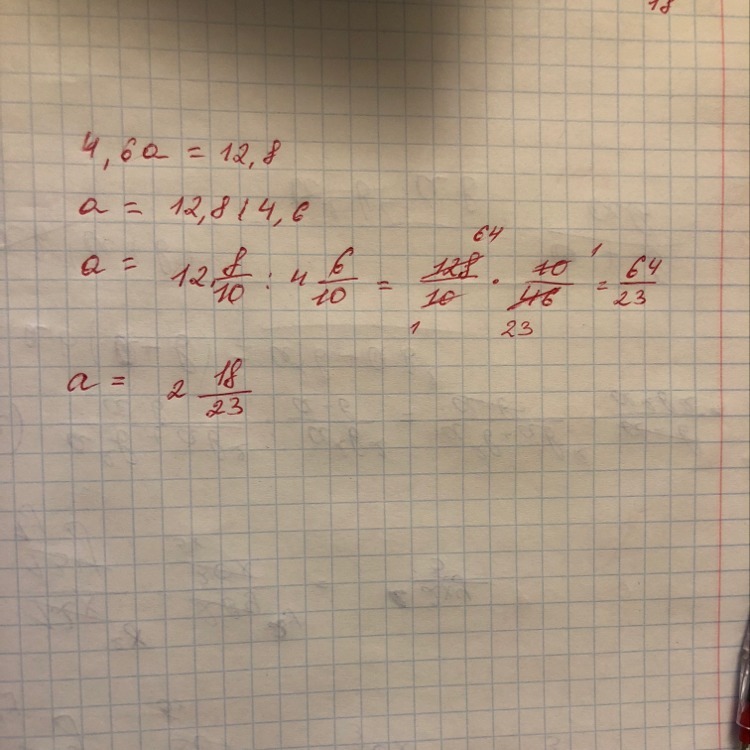 18
4,6a = 12,8
a = 12,8 : 4,6
a = 12 8/10 : 4 6/10 = 128/10 · 10/46 = 64/23
64 1
1 23
a = 2 18/23